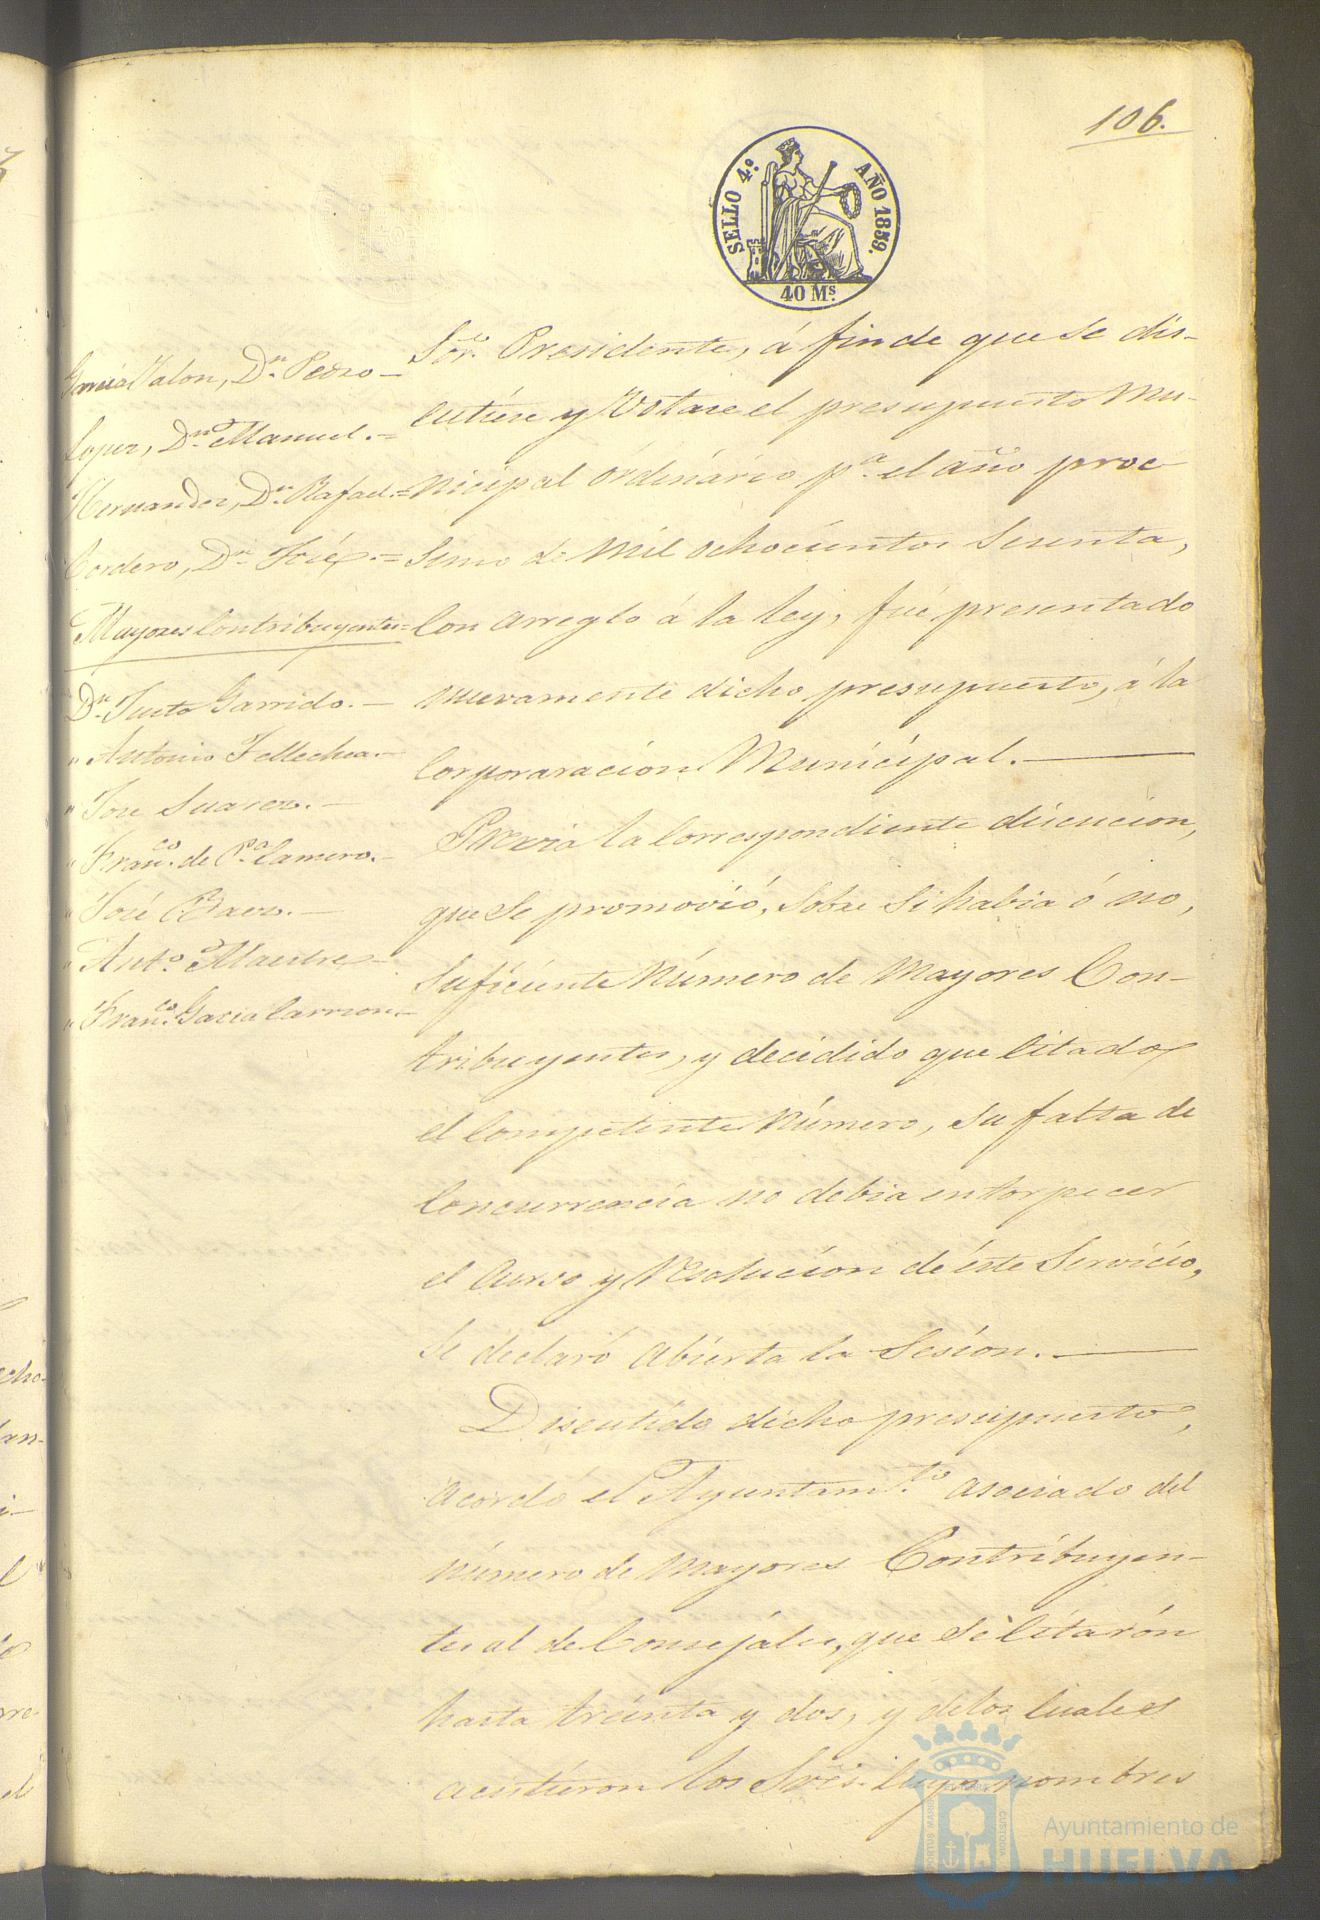 106.
SELLO 4.º AÑO 1859.
40 Ms.
Garcia Jalon, Dn. Pedro -
Lopez, Dn. Manuel. =
Hernandez, Dn. Rafael. =
Cordero, Dn. José =
Mayores Contribuyentes =
Dn. Justo Garrido. -
" António Tellechea. -
" Jose Suarez. -
" Franco. de Pa. Camero. -
" José Baez. -
" Anto. Maestre -
" Franco. Gacia Carrion. -
Sor. Presidente, á fin de que se dis-
cutiese y Votase el presupuesto Mu-
nicipal ordinário pa. el año proc-
simo de Mil ochocientos sesenta,
Con arreglo á la ley, fué presentado
nuevamente dicho presupuesto, á la
Corporaración Municipal.
Prévia la Correspondiente discucion,
que se promovió, sobre si habia ó no,
suficiente Número de Mayores Con-
tribuyentes, y decidido que Citado
el Competente Número, su falta de
Concurrencia no debia entorpecer
el Curso y Resolucion de éste Servicio,
se declaró abierta la Sesion.
Discutido dicho presupuesto,
acordó el Ayuntamto. asociado del
número de Mayores Contribuyen-
tes al de Consejáles, que se Citarón
hasta tréinta y dos, y delos Cuales
acistieron los Sres. Cuyos nombres
Ayuntamiento de
HUELVA